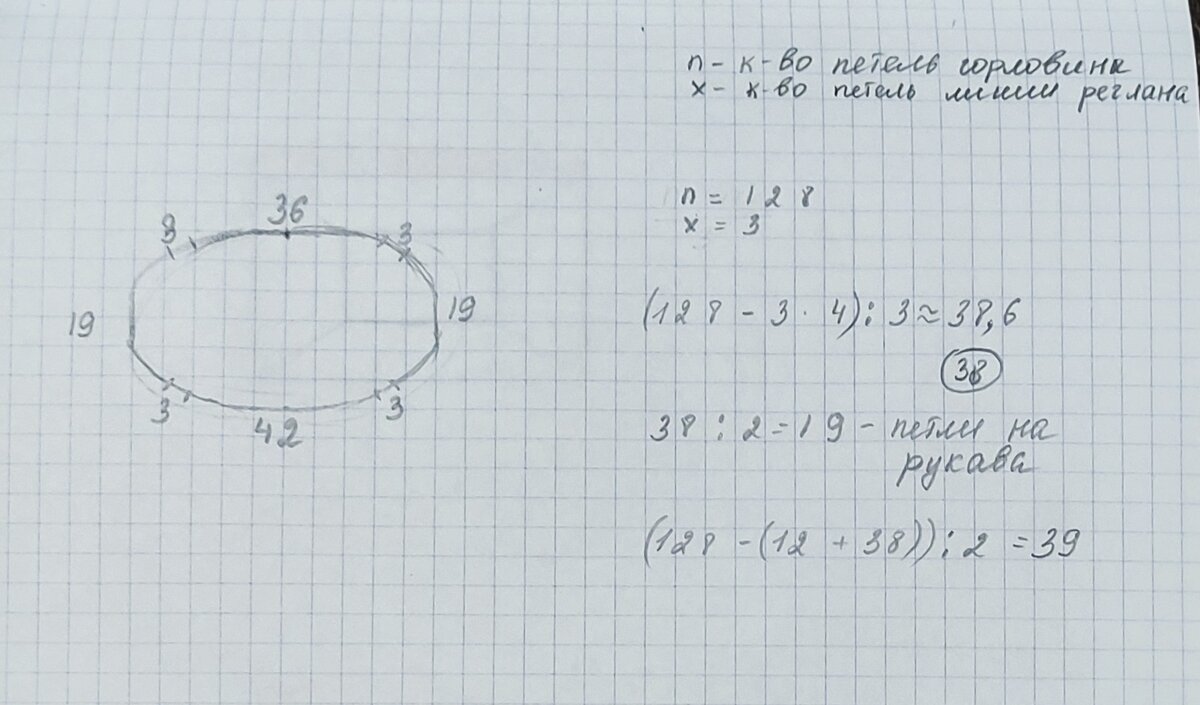 n - к-во петель горловин
x - к-во петель линии реглана
n = 128
x = 3
36
3
3
19
19
3
3
42
(128 - 3 · 4) : 3 ≈ 38,6
38
38 : 2 = 19 - петли на
рукава
(128 - (12 + 38)) : 2 = 39